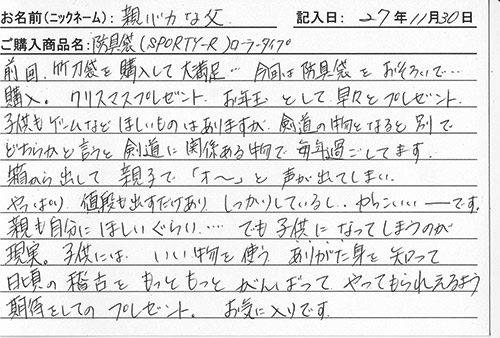 お名前(ニックネーム):親バカな父　記入日:27年11月30日
ご購入商品名:防具袋(SPORTY-R)ローラータイプ
前回、竹刀袋を購入して大満足…今回は防具袋をおそろいで…
購入。クリスマスプレゼント、お年玉として早々とプレゼント。
子供もゲームなどほしいものはありますが、剣道の物となると別で
どちらかと言うと剣道に関係ある物で毎年過ごしてます。
箱から出して親子で「オ〜」と声が出てしまい、
やっぱり、値段も出すだけあり、しっかりしているし、かっこいいーです。
親も自分にほしいぐらい….でも子供になってしまうのが
現実。子供には、いい物を使うありがた身を知って
日頃の稽古をもっともっとがんばってやってもられえるよう
期待をしてのプレゼント。お気に入りです。